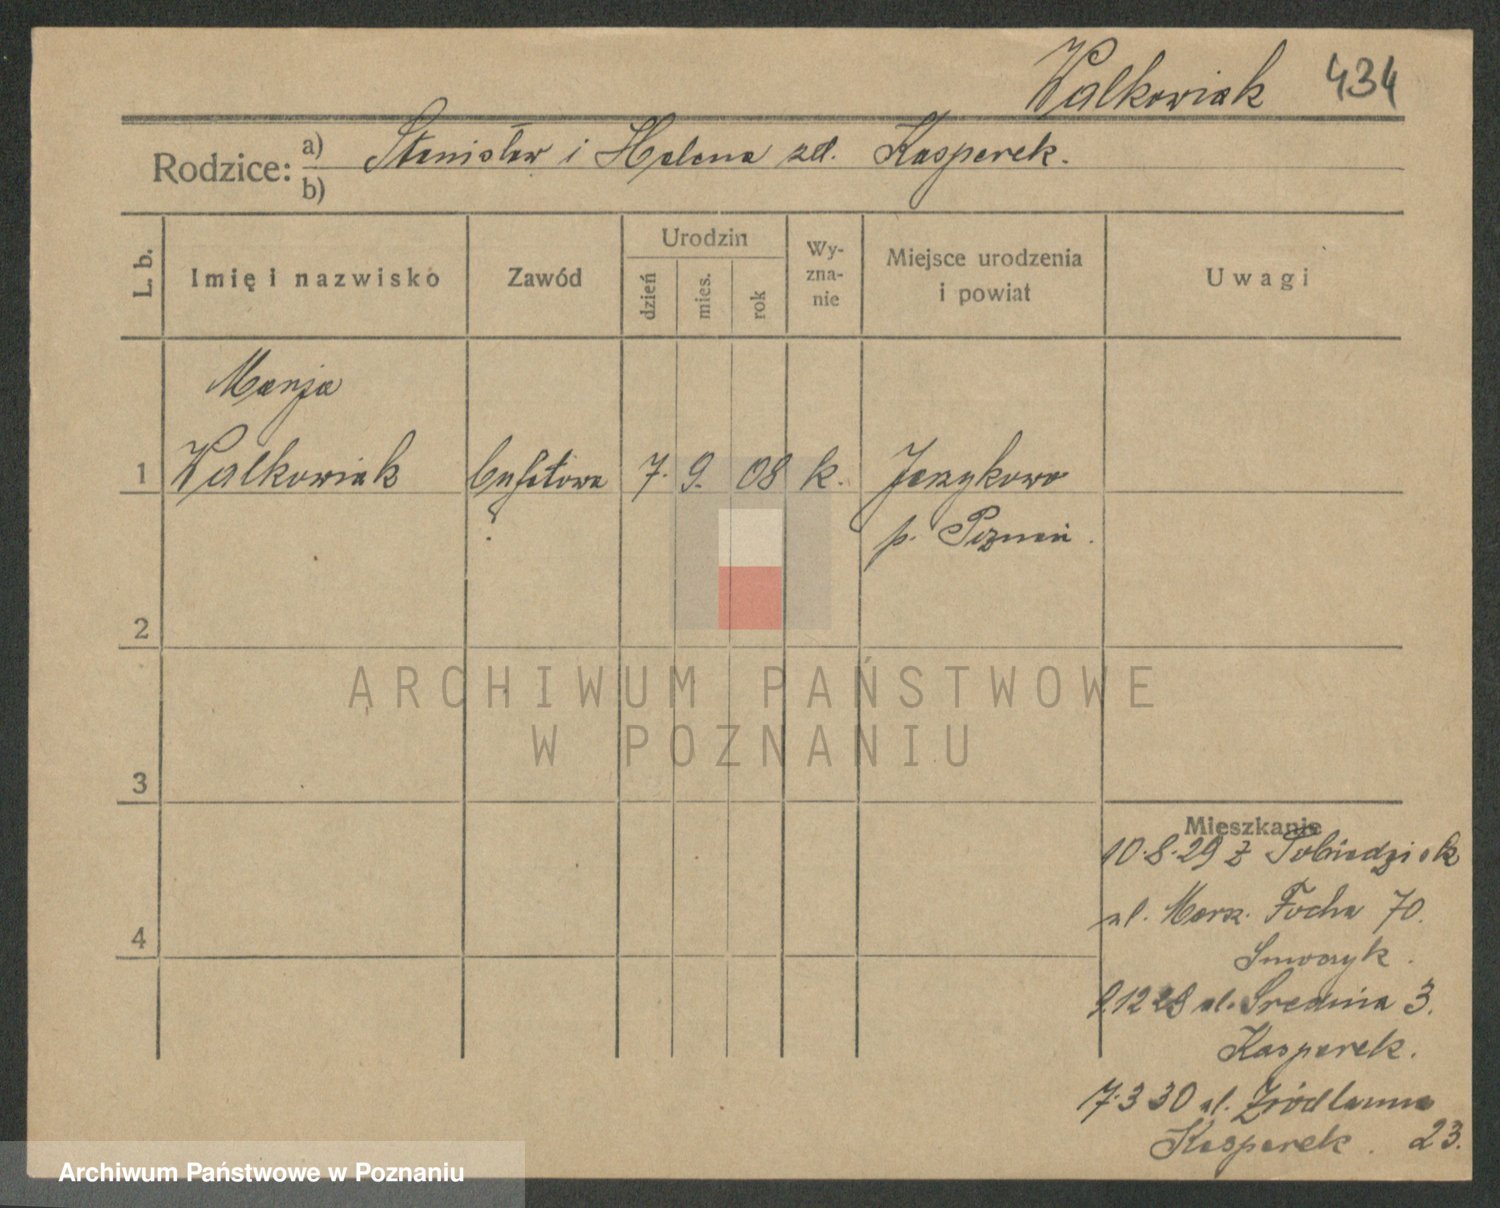 Walkowiak 434
Rodzice: a) Stanisław i Helena zd. Kasperek.
b)
L. b. Imię i nazwisko Zawód Urodzin dzień mies. rok Wyznanie Miejsce urodzenia i powiat Uwagi
Marja
1 Walkowiak bufetowa 7. 9. 08 k. Jerzykowo
p. Poznań.
2
ARCHIWUM PAŃSTWOWE
W POZNANIU
3
Mieszkanie
10.8.29 z Pobiedzisk
ul. Marsz. Focha 70.
4
9.12 28 ul. Średnia 3.
Kasperek.
7.3 30 ul. Źródlanna
Kasperek. 23.
Archiwum Państwowe w Poznaniu